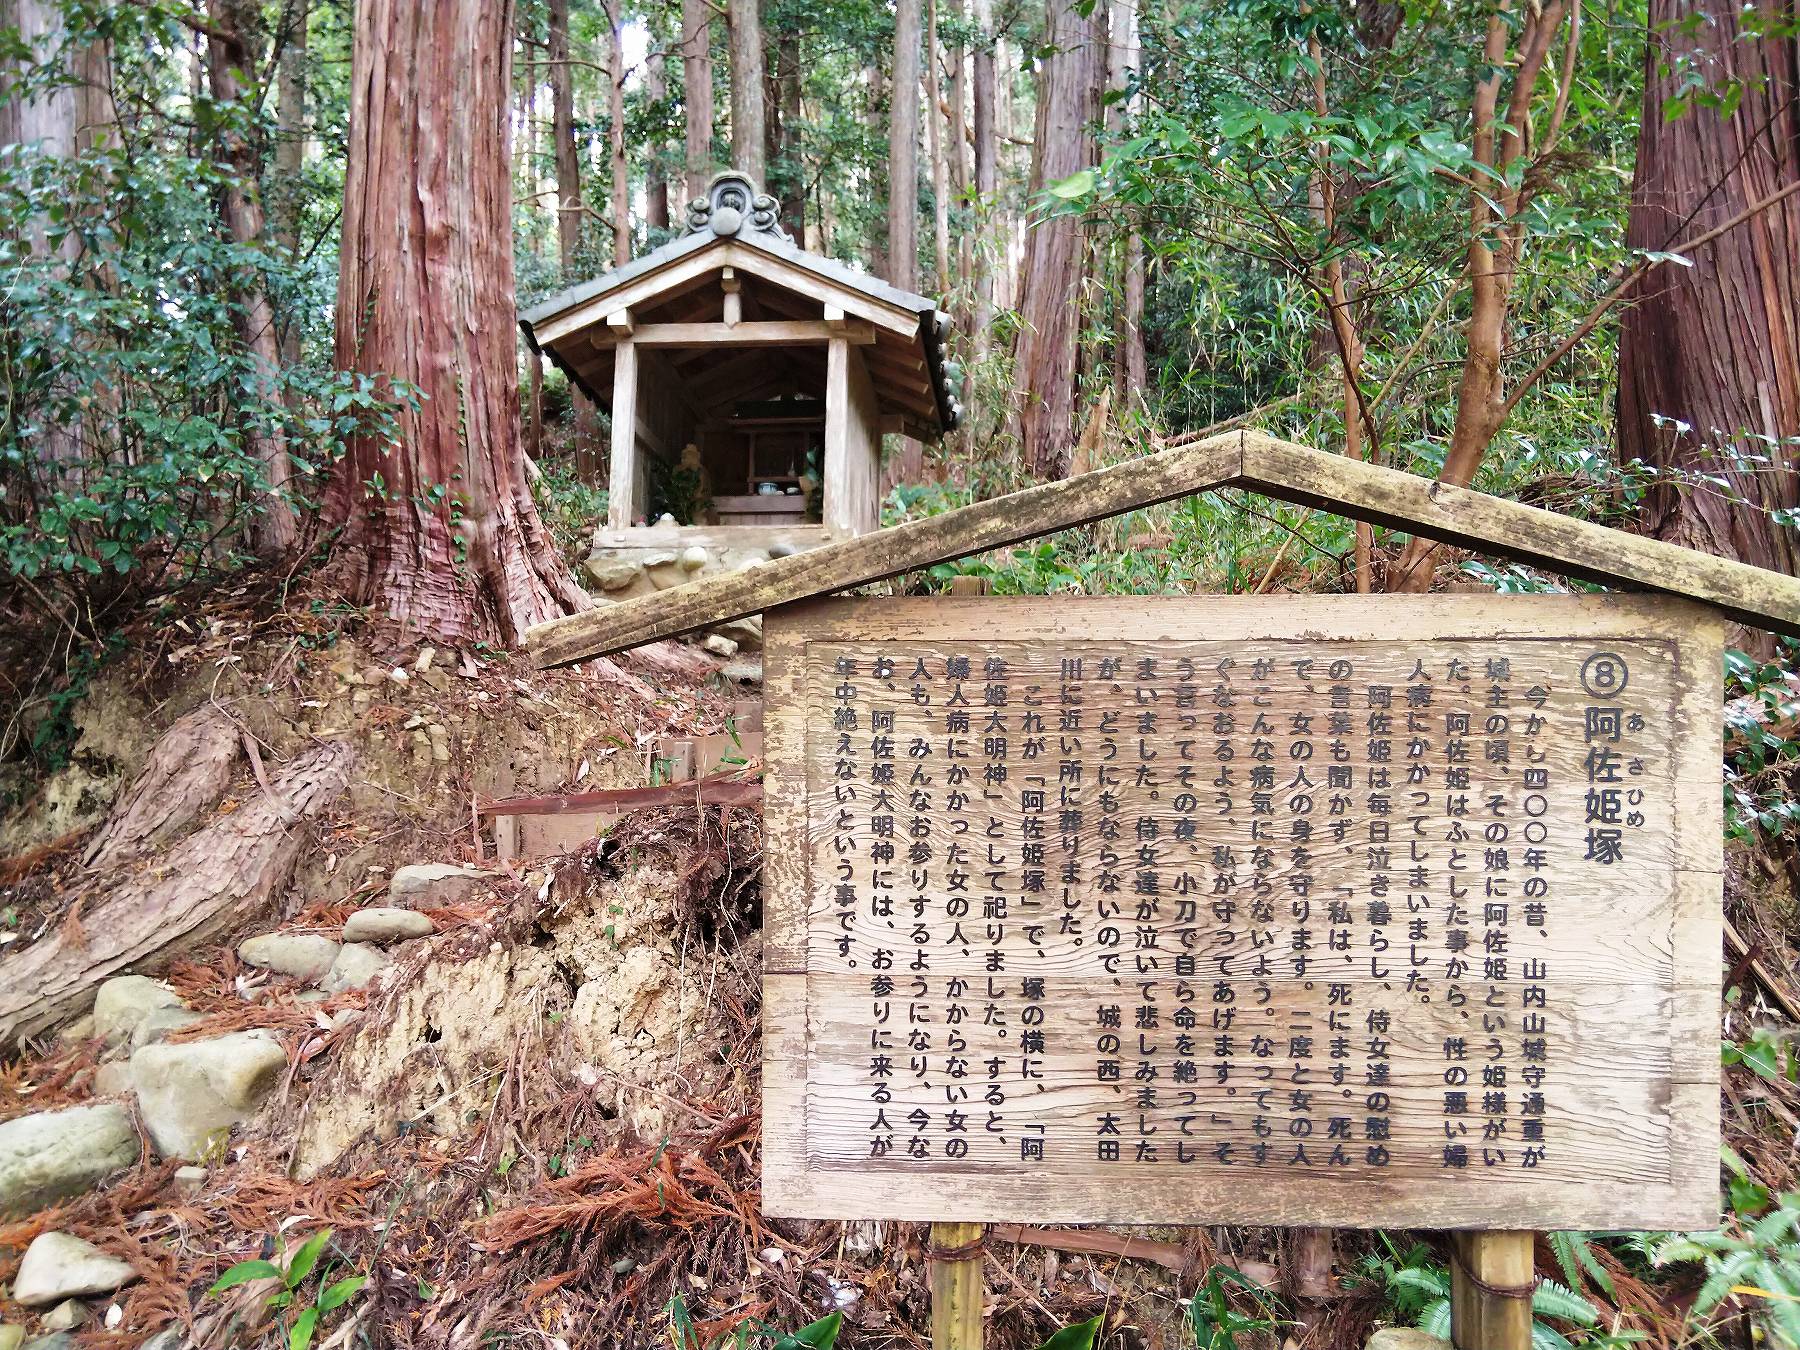 ⑧阿佐姫塚
あさひめ
今から四〇〇年の昔、山内山城守通重が
城主の頃、その娘に阿佐姫という姫様がい
た。阿佐姫はふとした事から、性の悪い婦
人病にかかってしまいました。
阿佐姫は毎日泣き暮らし、侍女達の慰め
の言葉も聞かず、「私は、死にます。死ん
で、女の人の身を守ります。二度と女の人
がこんな病気にならないよう。なってもす
ぐなおるよう、私が守ってあげます。」そ
う言ってその夜、小刀で自ら命を絶ってし
まいました。侍女達が泣いて悲しみました
が、どうにもならないので、城の西、太田
川に近い所に葬りました。
これが「阿佐姫塚」で、塚の横に、「阿
佐姫大明神」として祀りました。すると、
婦人病にかかった女の人、かからない女の
人も、みんなお参りするようになり、今な
お、阿佐姫大明神には、お参りに来る人が
年中絶えないという事です。